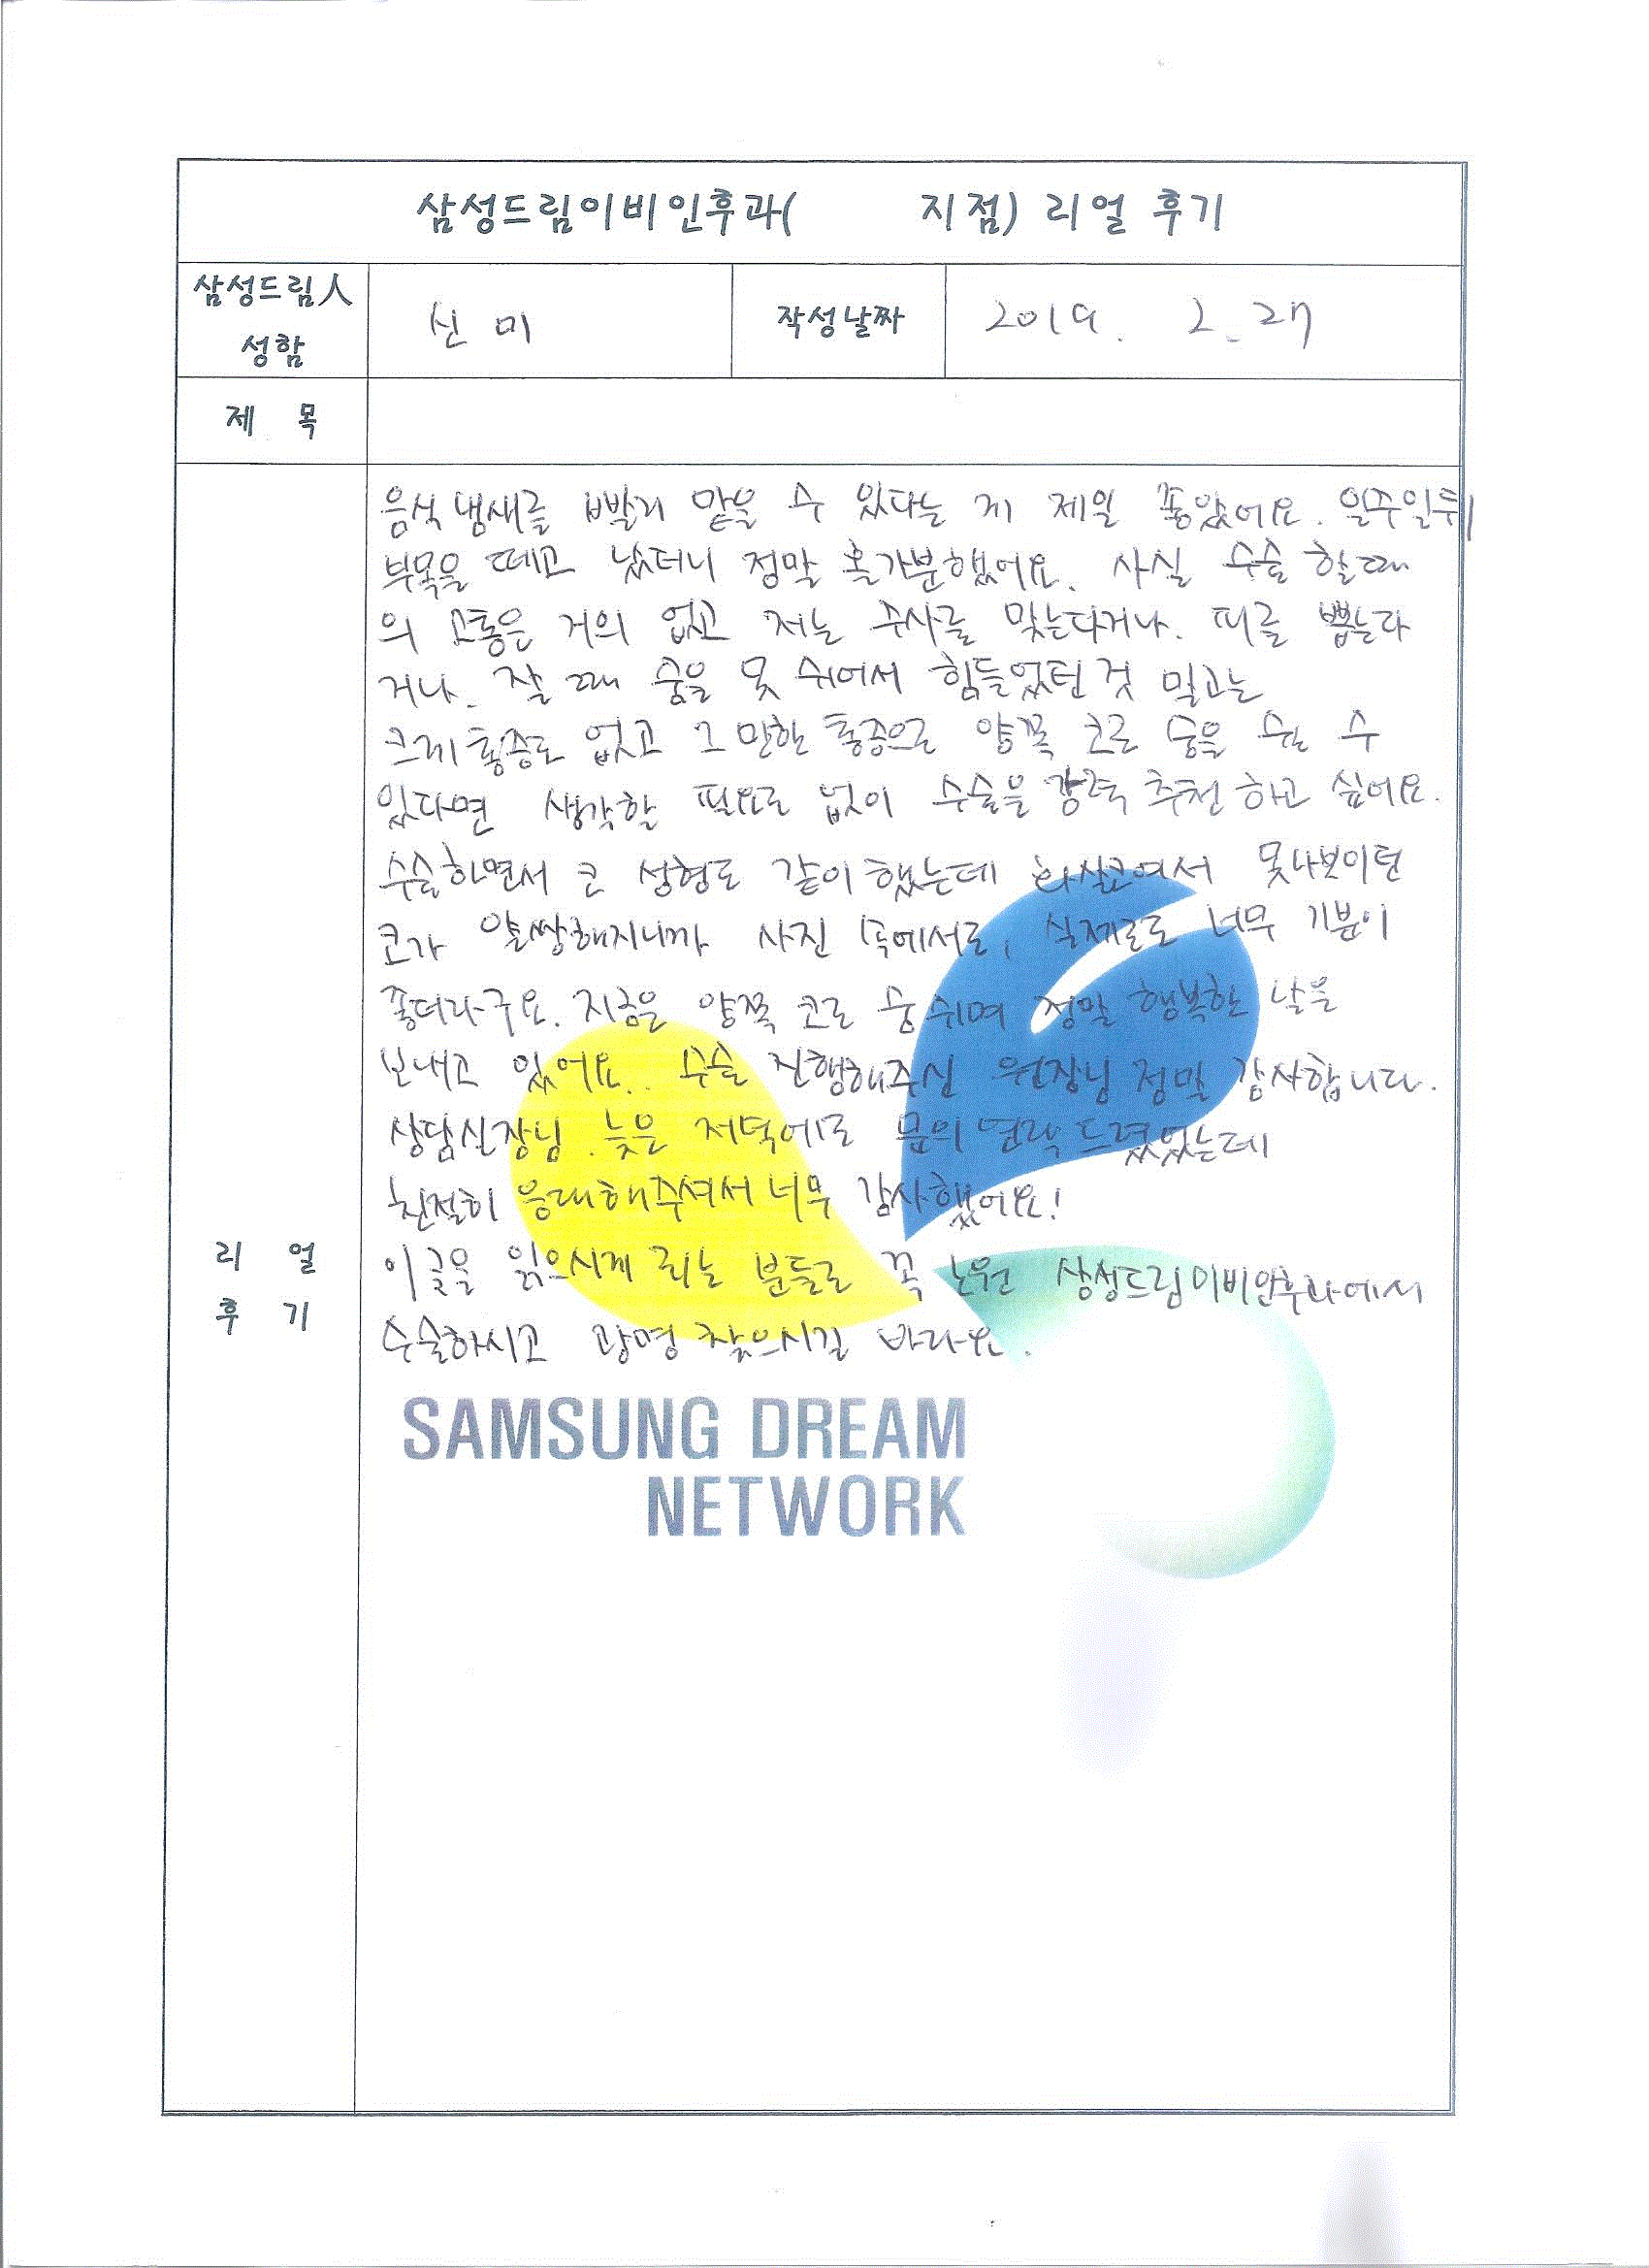 삼성드림이비인후과(          지점) 리얼 후기
삼성드림人
성함
신 미
작성날짜
2019. 2. 27
제 목
음식 냄새를 빨리 맡을 수 있다는 게 제일 좋았어요. 일주일뒤
부목을 떼고 났더니 정말 홀가분했어요. 사실 수술 할때
의 고통은 거의 없고 저는 주사를 맞는다거나. 피를 뽑는다
거나. 잘 때 숨을 못 쉬어서 힘들었던 것 말고는
크게 통증도 없고 그 만한 통증으로 양쪽 코로 숨을 쉴 수
있다면 생각할 필요도 없이 수술을 강력 추천 하고 싶어요.
수술하면서 코 성형도 같이 했는데 화살코여서 못나보이던
코가 얄쌍해지니까 사진 속에서도, 실제로도 너무 기분이
좋더라구요. 지금은 양쪽 코로 숨 쉬며 정말 행복한 날을
보내고 있어요.. 수술 진행해주신 원장님 정말 감사합니다.
상담실장님. 늦은 저녁에도 문의 연락 드렸었는데
친절히 응대해주셔서 너무 감사했어요!
이 글을 읽으시게 되는 분들도 꼭 노원 삼성드림이비인후과에서
수술하시고 광명 찾으시길 바라요.
리 얼
후 기
SAMSUNG DREAM
NETWORK